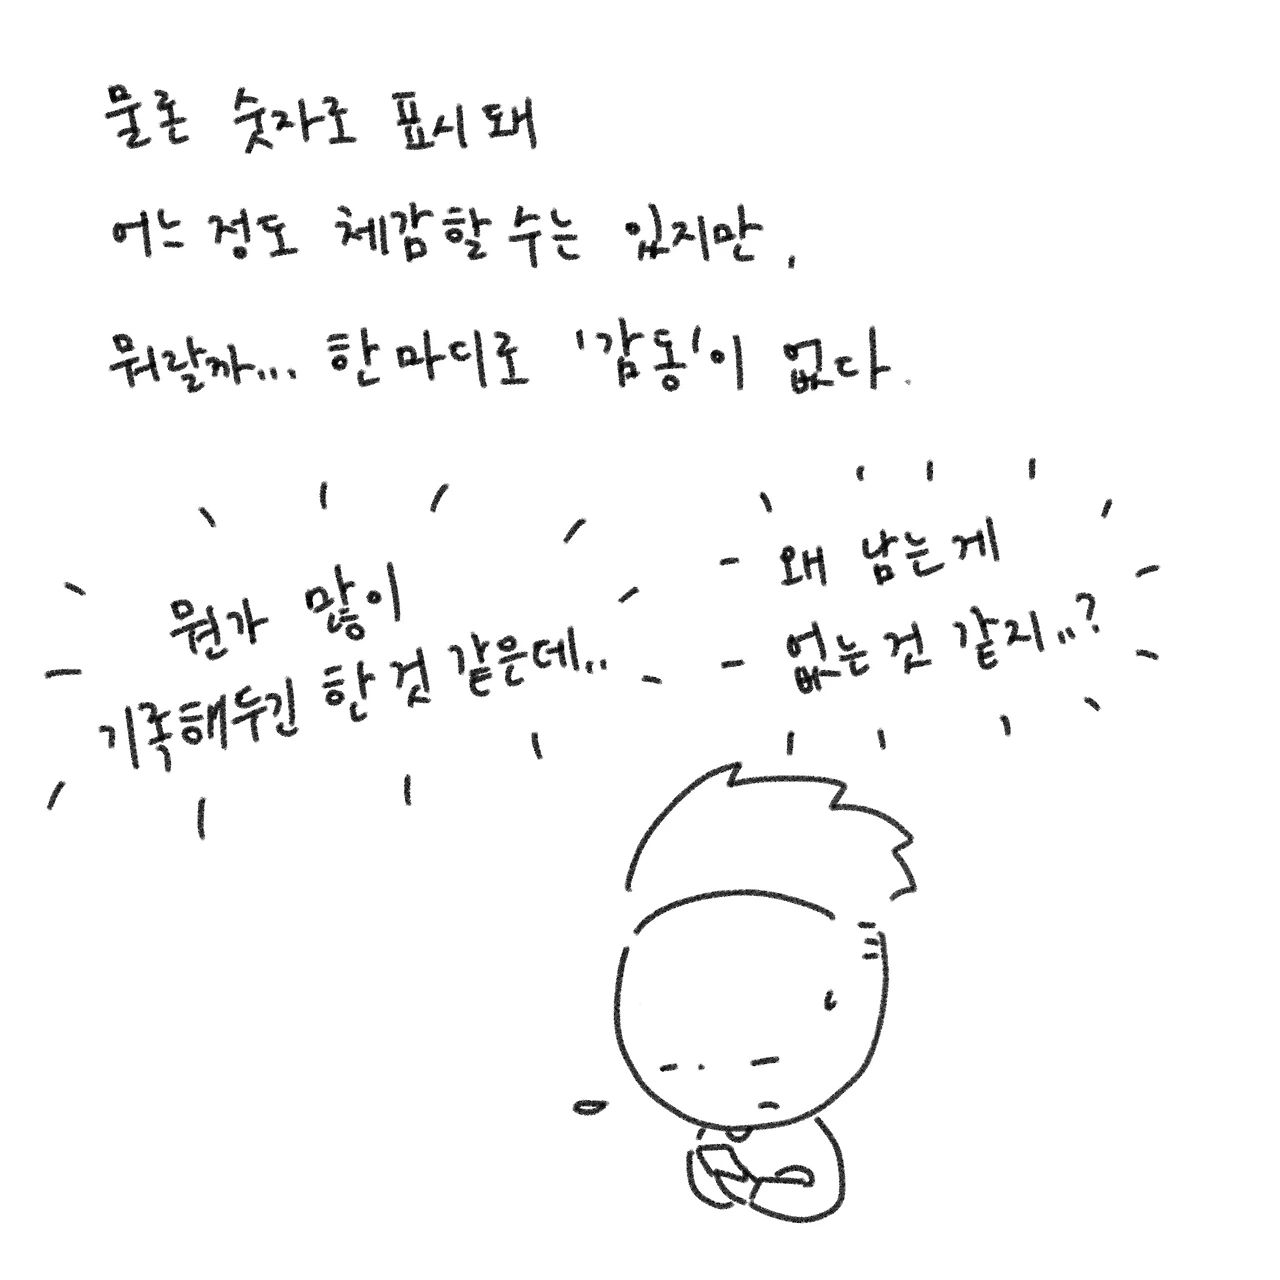 물론 숫자로 표시돼
어느 정도 체감할 수는 있지만,
뭐랄까... 한 마디로 '감동'이 없다.
뭔가 많이
기록해두긴 한 것 같은데..
왜 남는게
없는것 같지..?